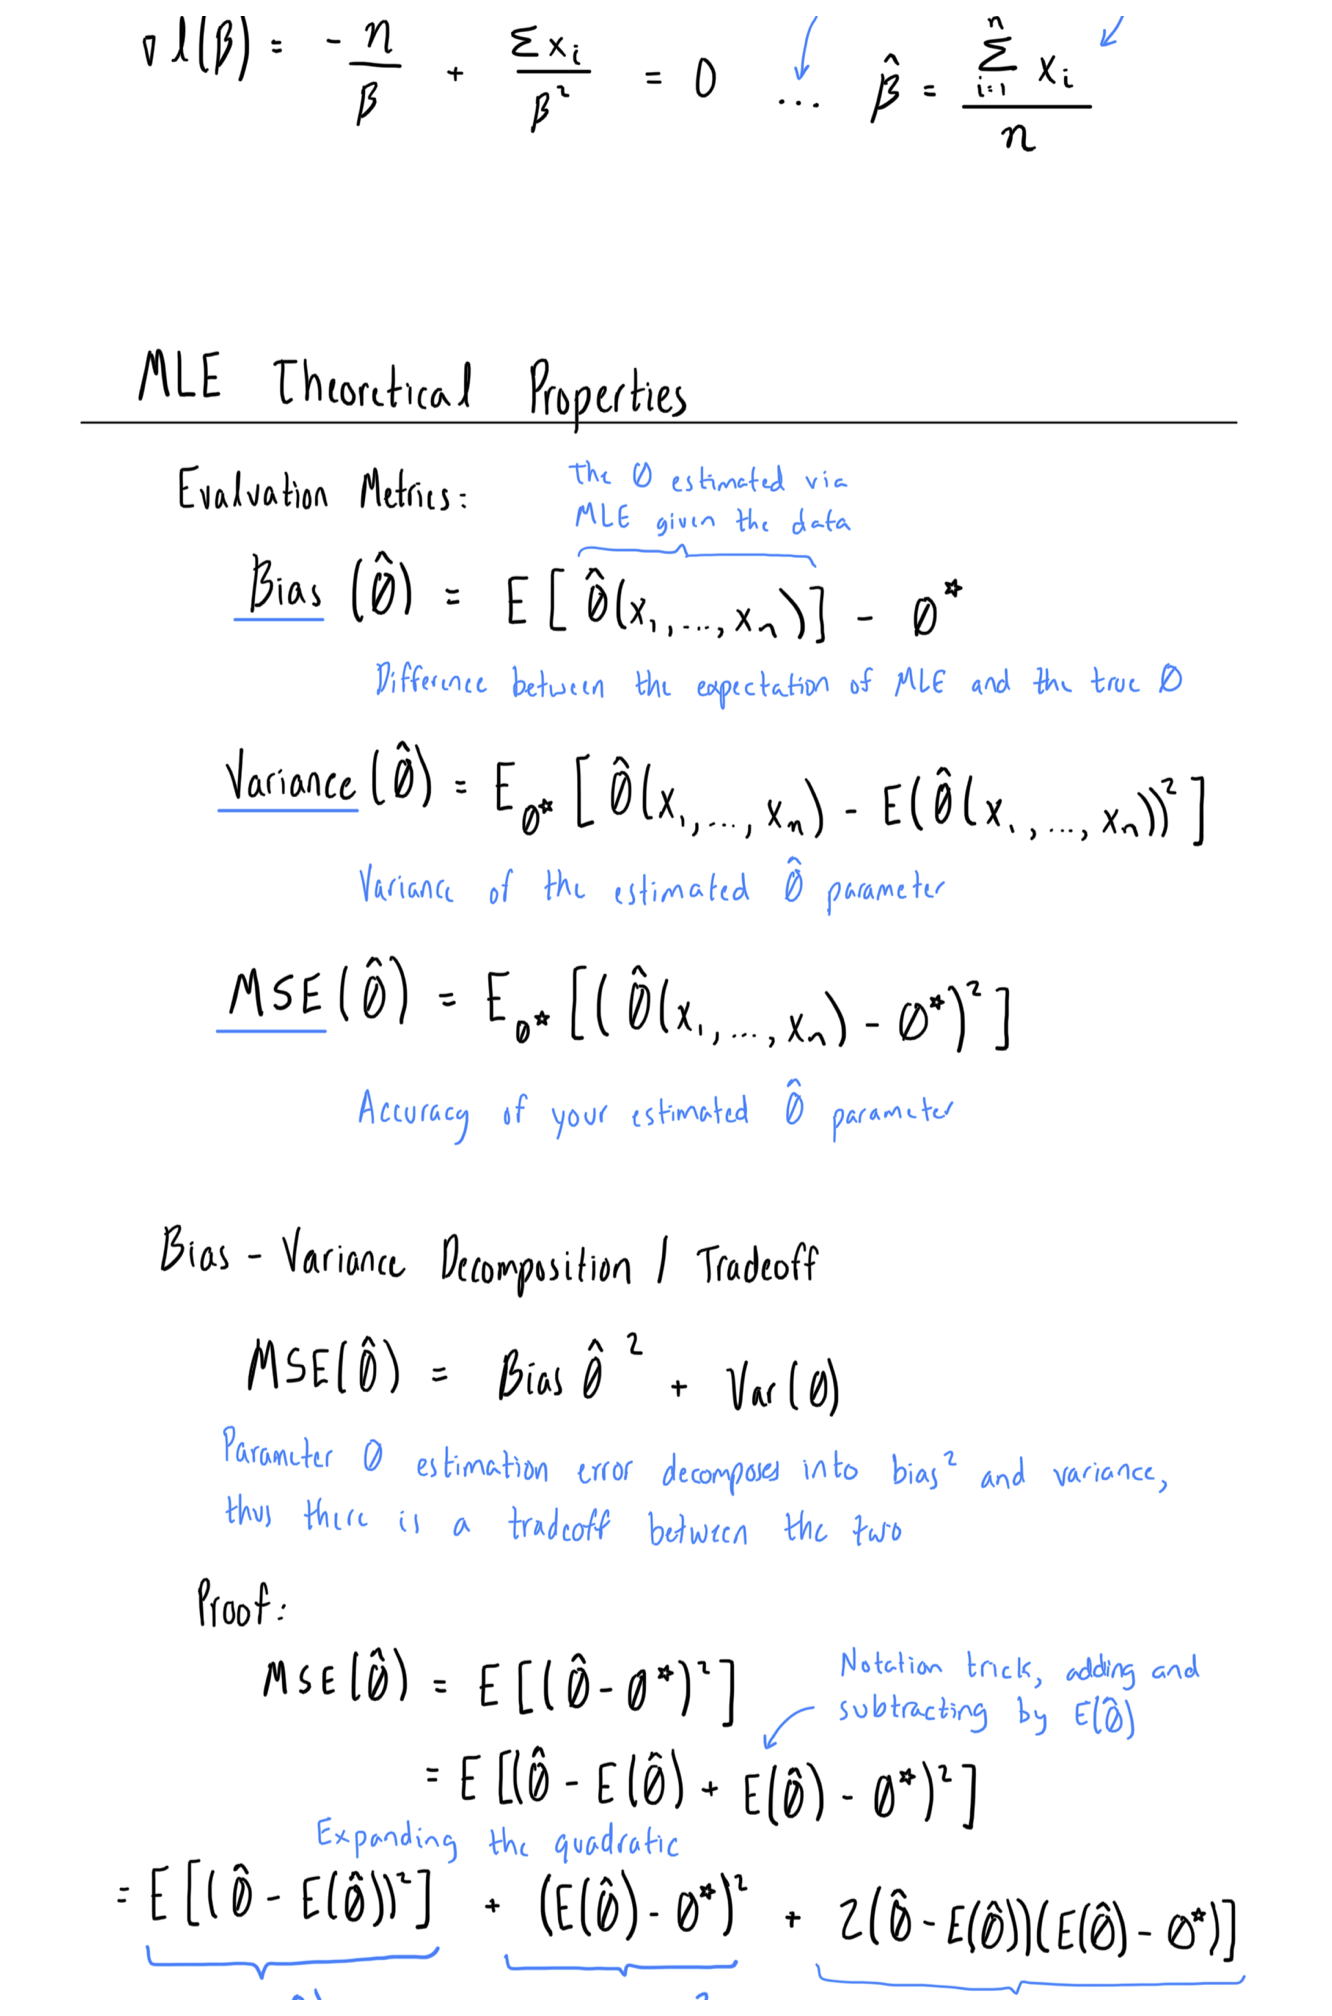 ∇ l(β) = - n/β + Σxᵢ/β² = 0 ... β̂ = Σⁿᵢ₌₁ xᵢ / n
MLE Theoretical Properties
Evaluation Metrics:
the θ estimated via
MLE given the data
Bias (θ̂) = E[θ̂(x₁,...,xₙ)] - θ*
Difference between the expectation of MLE and the true θ
Variance (θ̂) = E_θ* [θ̂(x₁,...,xₙ) - E(θ̂(x₁,...,xₙ))²]
Variance of the estimated θ̂ parameter
MSE(θ̂) = E_θ* [(θ̂(x₁,...,xₙ) - θ*)²]
Accuracy of your estimated θ̂ parameter
Bias - Variance Decomposition / Tradeoff
MSE(θ̂) = Bias θ̂ ² + Var(θ)
Parameter θ estimation error decomposes into bias² and variance,
thus there is a tradeoff between the two
Proof:
MSE(θ̂) = E[(θ̂ - θ*)²]
Notation trick, adding and
subtracting by E(θ̂)
= E[(θ̂ - E(θ̂) + E(θ̂) - θ*)²]
Expanding the quadratic
= E[(θ̂ - E(θ̂))²] + (E(θ̂) - θ*)² + 2(θ̂ - E(θ̂))(E(θ̂) - θ*)]